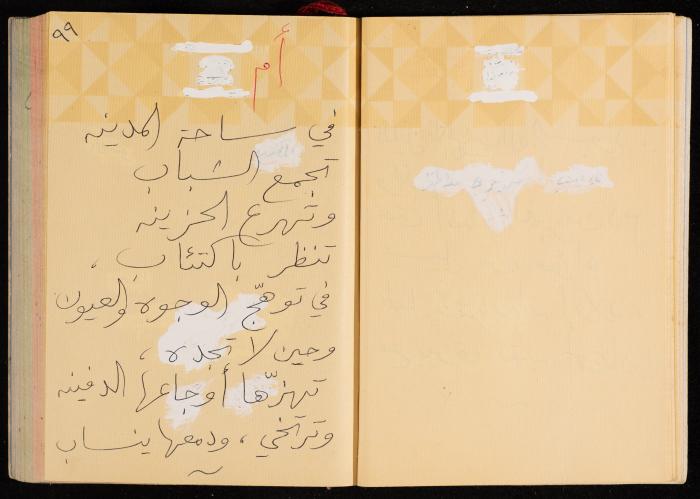 ٩٩
أم
في ساحة المدينه
تجمع الشباب
وتهرع الحزينه
تنظر باكتئاب ،
في توهّج الوجوه والعيون
وحين لا تجده ،
تهزّها أوجاعها الدفينه
وترتخي ، ودمعها ينساب